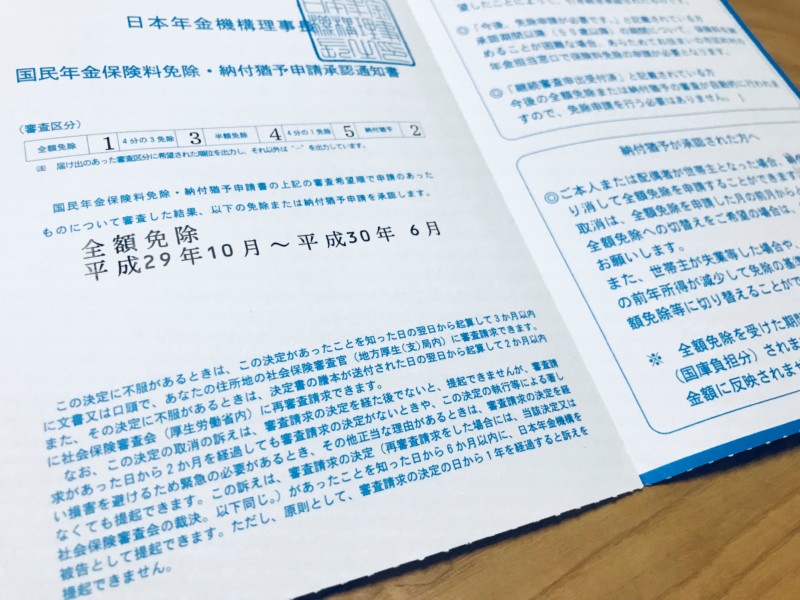 日本年金機構理事長
国民年金保険料免除・納付猶予申請承認通知書
(審査区分)
全額免除 1 4分の3免除 3 半額免除 4 4分の1免除 5 納付猶予 2
届け出のあった審査区分に希望された順位を出力し、それ以外は"―"を出力しています。
国民年金保険料免除・納付猶予申請書の上記の審査希望順で申請のあった
ものについて審査した結果、以下の免除または納付猶予申請を承認します。
全額免除
平成29年10月～平成30年 6月
この決定に不服があるときは、この決定があったことを知った日の翌日から起算して3か月以内
に文書又は口頭で、あなたの住所地の社会保険審査官(地方厚生(支)局内)に審査請求できます。
また、その決定に不服があるときは、決定書の謄本が送付された日の翌日から起算して2か月以内
に社会保険審査会(厚生労働省内)に再審査請求できます。
なお、この決定の取消の訴えは、審査請求の決定を経た後でないと、提起できませんが、審査請
求があった日から2か月を経過しても審査請求の決定がないときや、この決定の執行等による著し
い損害を避けるため緊急の必要があるとき、その他正当な理由があるときは、審査請求の決定を経
なくても提起できます。この訴えは、審査請求の決定(再審査請求をした場合には、当該決定又は
社会保険審査会の裁決。以下同じ。)があったことを知った日から6か月以内に、日本年金機構を
被告として提起できます。ただし、原則として、審査請求の決定の日から1年を経過すると訴えを
提起できません。
◎「今後、免除申請が必要です。」と記載されている方
承認期間以降(59歳以降)の期間について、引き続き免除または納付猶
めることが困難な場合、あらためてお住まいの市区町村
年金担当窓口で保険料免除の申請が必要となります。
◎「継続審査申出受付済」と記載されている方
今後の全額免除または納付猶予の審査が自動的に行われま
すので、免除申請を行う必要はありません。
納付猶予が承認された方へ
◎ご本人または配偶者が世帯主となった場合、
り消して全額免除を申請することができます
取消は、全額免除を申請した月の前月から
全額免除への切替えをご希望の場合は、
お願いします。
また、世帯主が失業等した場合や、
の前年所得が減少して免除の基準
額免除等に切り替えることがで
※ 全額免除を受けた期間
(国庫負担分)されま
金額に反映されませ